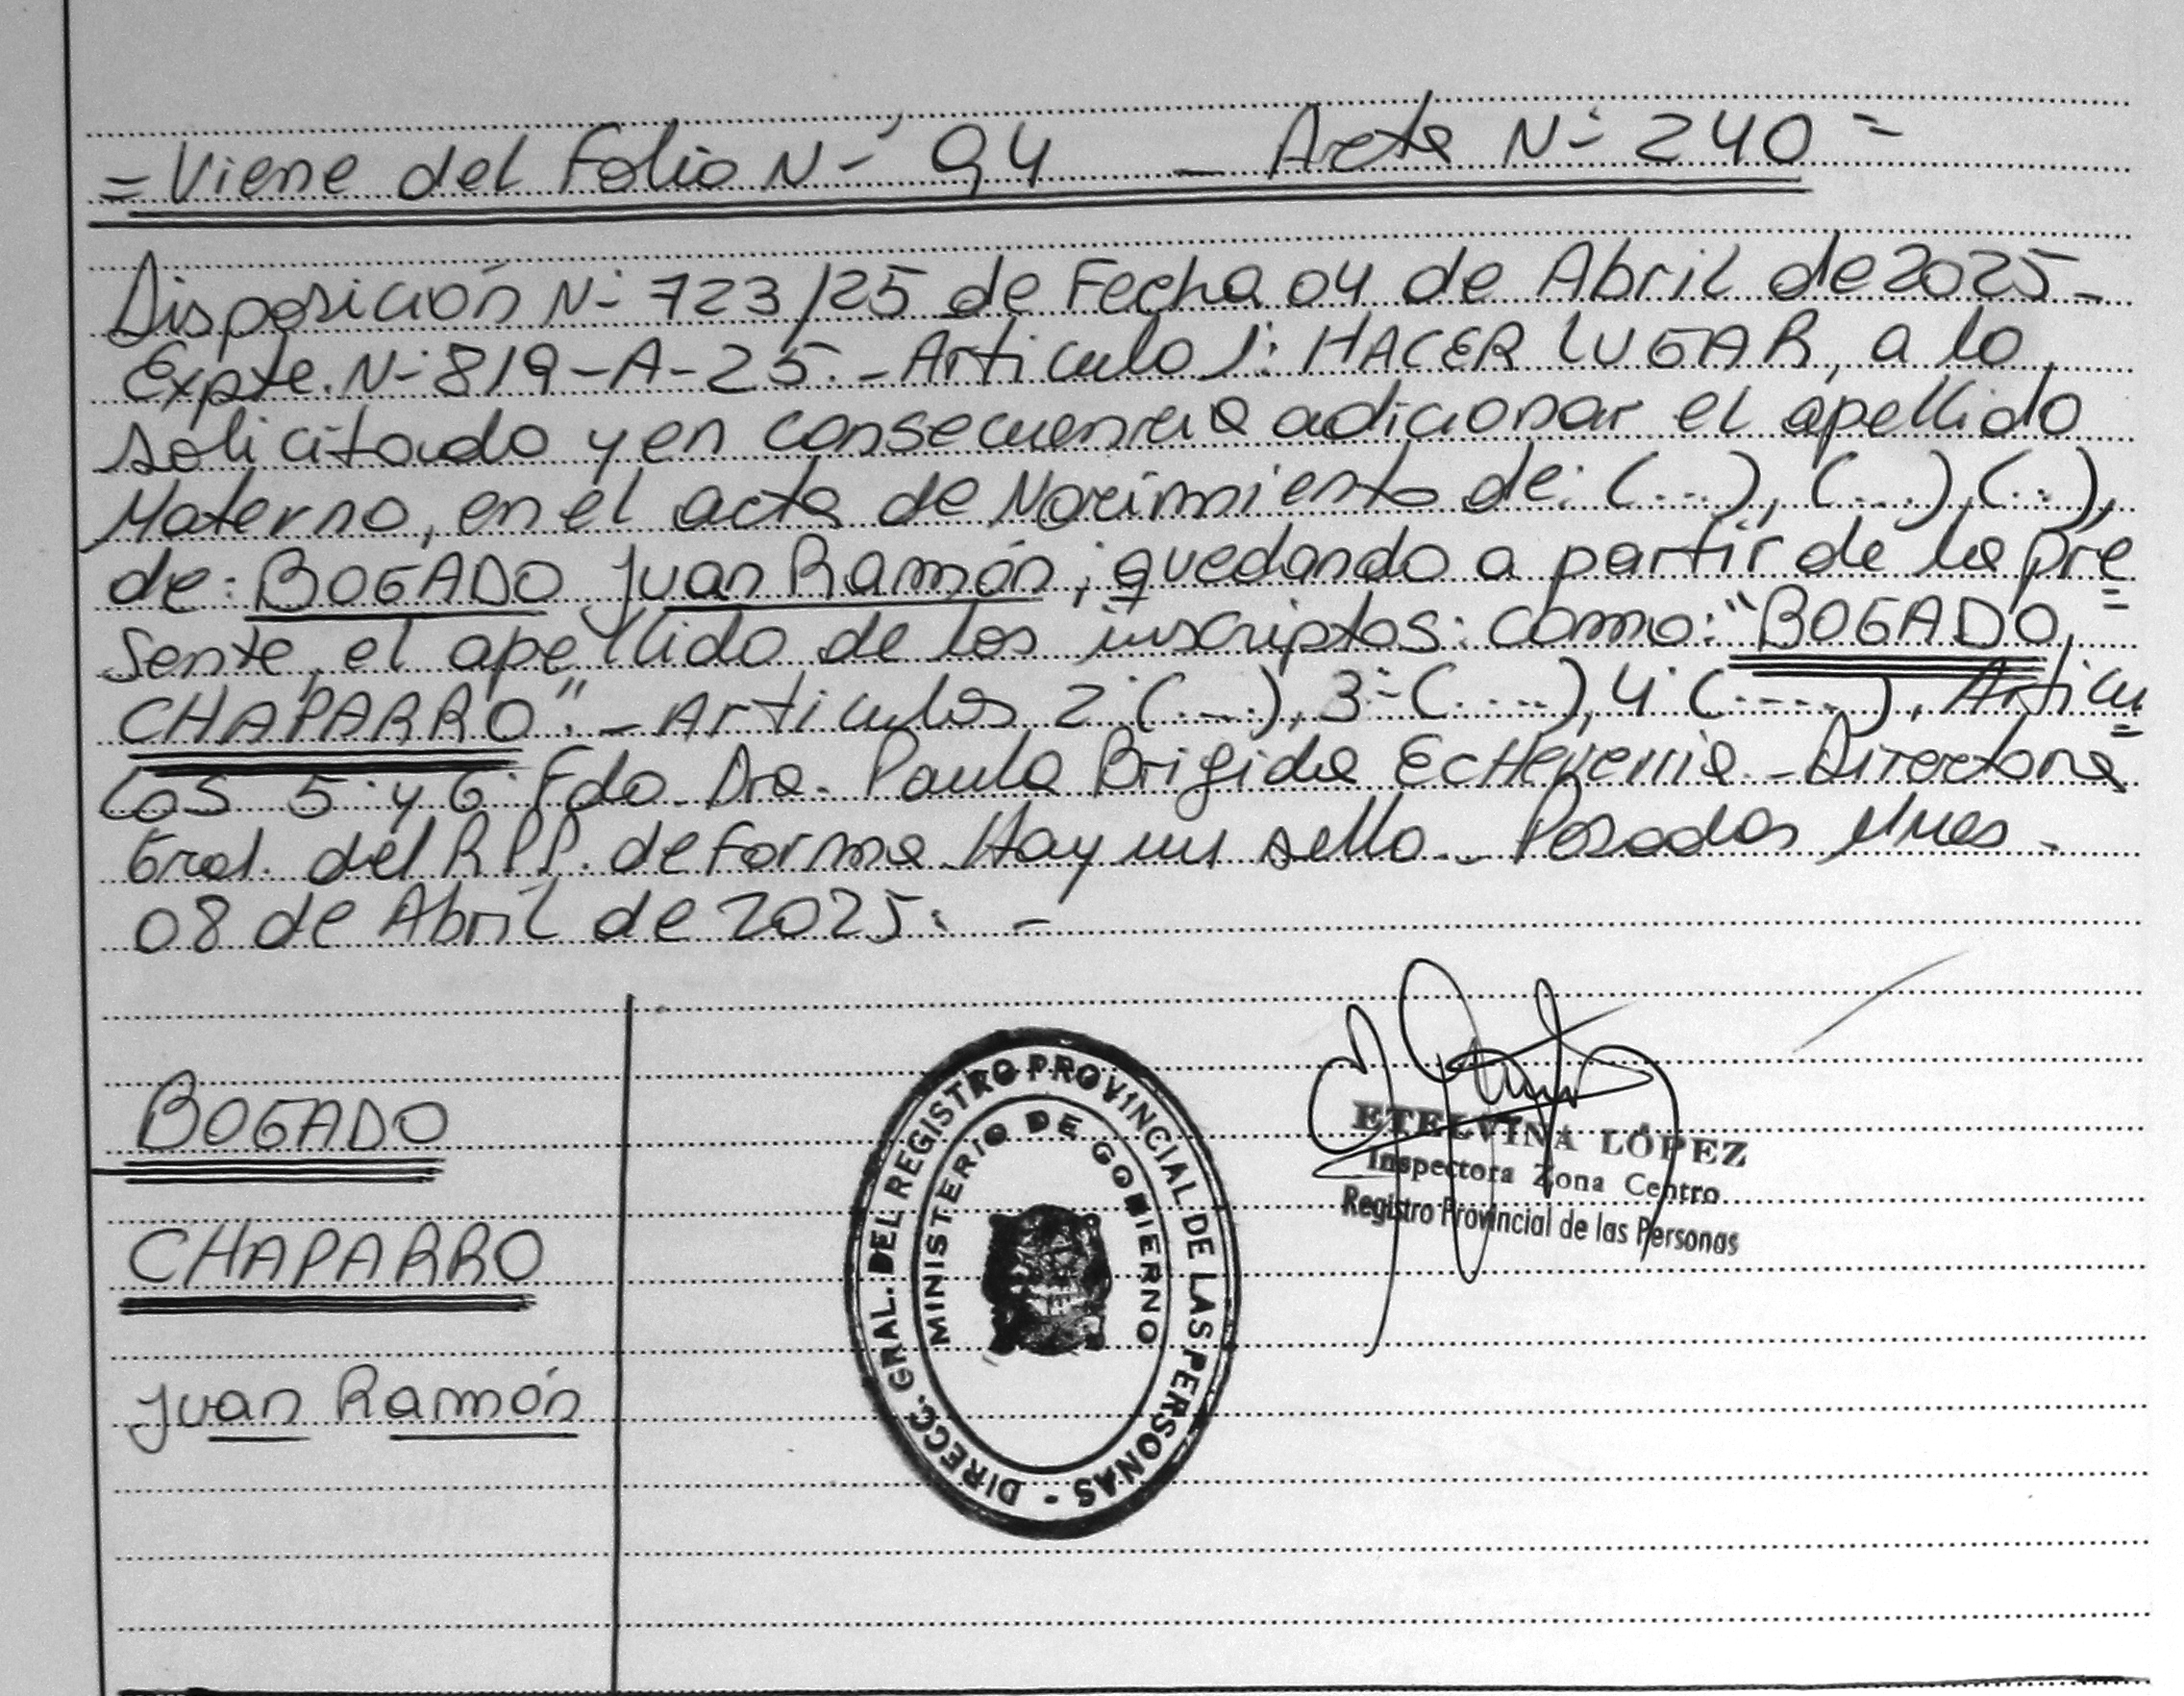 = Viene del Folio N° 94 - Acta N° 240 =
Disposición N° 723/25 de Fecha 04 de Abril de 2025-
Expte. N° 819-A-25.- Articulo 1: HACER LUGAR, a lo
solicitado y en consecuencia adicionar el apellido
Materno, en el acta de Nacimiento de: (...), (...), (...),
de: BOGADO Juan Ramón; quedando a partir de la pre
sente, el apellido de los inscriptos: como: "BOGADO,
CHAPARRO".- Articulos 2° (...), 3° (....), 4° (....), Articu
los 5° y 6° Fdo. Dra. Paula Brigida Echeverria - Directora
Gral. del R.P.P. de forma. Hay un sello. - Posadas Mnes.
08 de Abril de 2025. -
BOGADO
CHAPARRO
Juan Ramón
DIRECC. GRAL. DEL REGISTRO PROVINCIAL DE LAS PERSONAS -
MINISTERIO DE GOBIERNO
ETELVINA LÓPEZ
Inspectora Zona Centro
Registro Provincial de las Personas